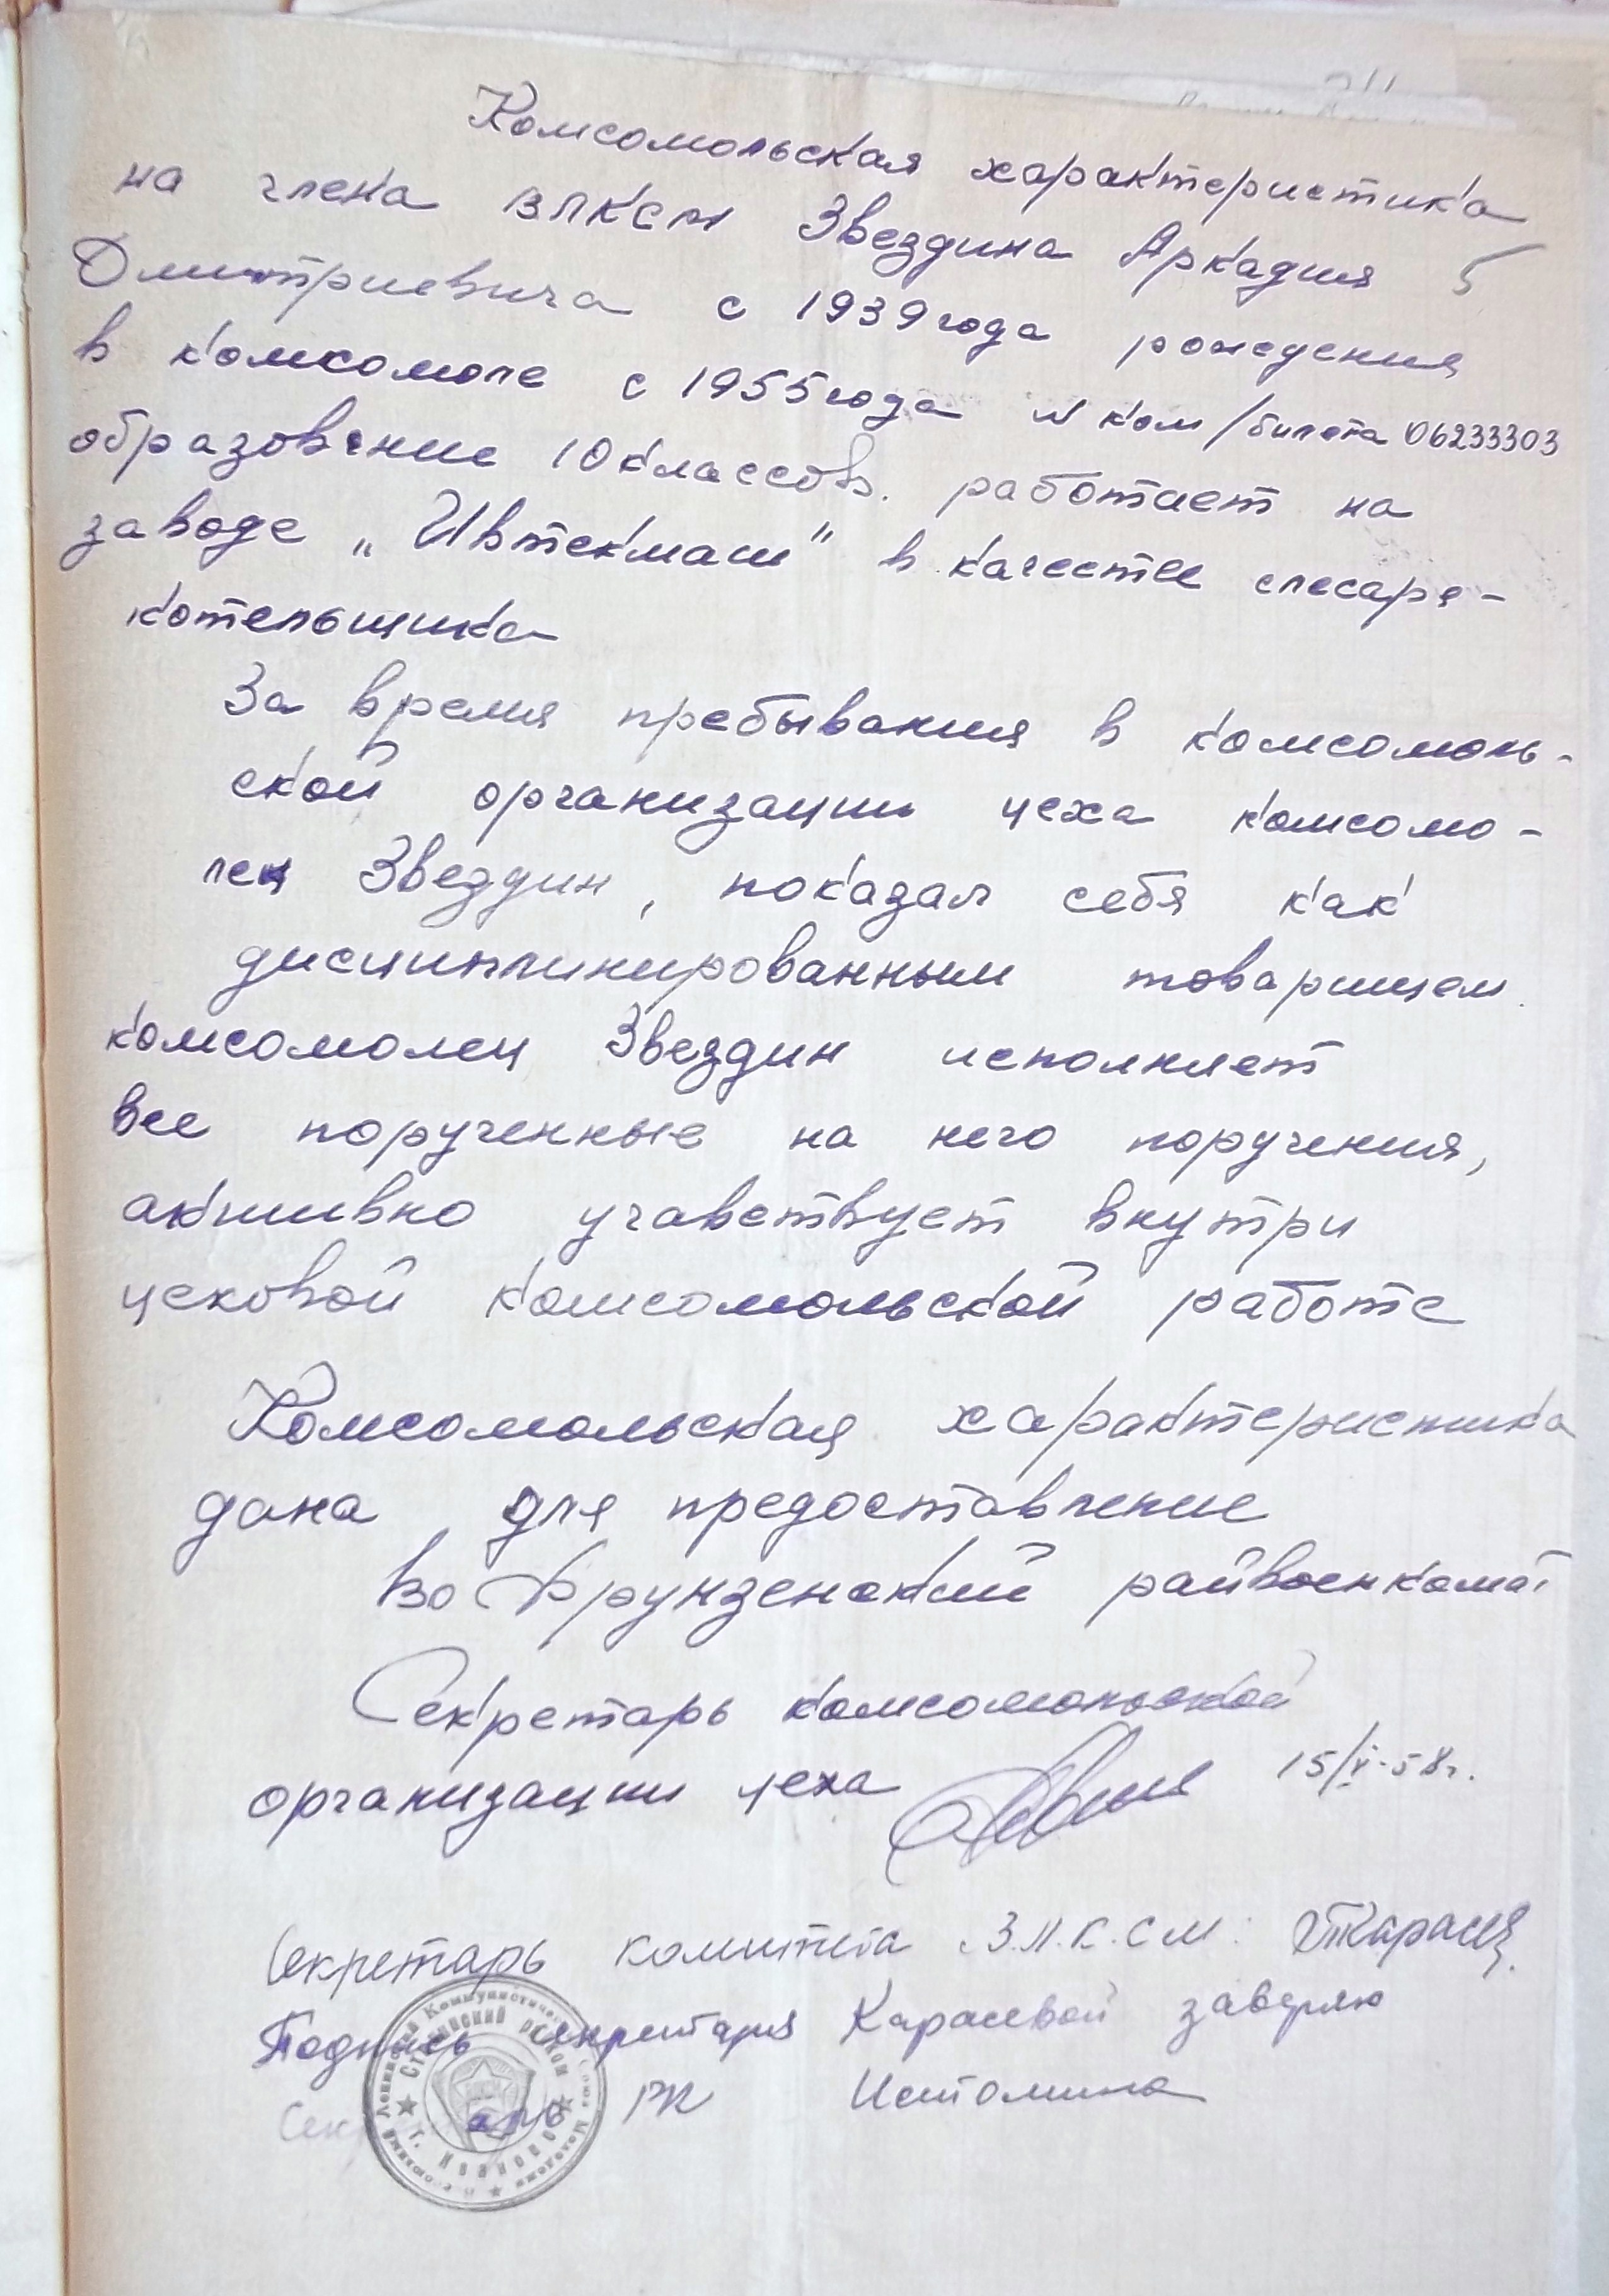 Комсомольская характеристика
на члена ВЛКСМ Звездина Аркадия
Дмитриевича с 1939 года рождения
в комсомоле с 1955 года N ком/билета 06233303
образование 10 классов. работает на
заводе „Ивтекмаш" в качестве слесаря-
котельщика
За время пребывания в комсомоль-
ской организации цеха комсомо-
лец Звездин, показал себя как
дисциплинированным товарищем.
комсомолец Звездин исполняет
все порученные на него поручения,
активно учавствует внутри
цеховой комсомольской работе
Комсомольская характеристика
дана для предоставление
во Фрунзенский райвоенкомат
Секретарь комсомольской
организации цеха 15/V-58г.
Секретарь комитета В.Л.К.С.М:
Подпись секретаря Карасевой заверяю
Секретарь РК Истомина
Сталинский райком
г. Иваново